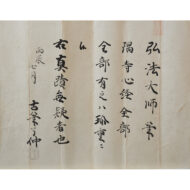 弘法大師 筆
隅寺心経全部
全部有之八珍重々
右真蹟無疑者也
丙辰 七月 古筆了仲